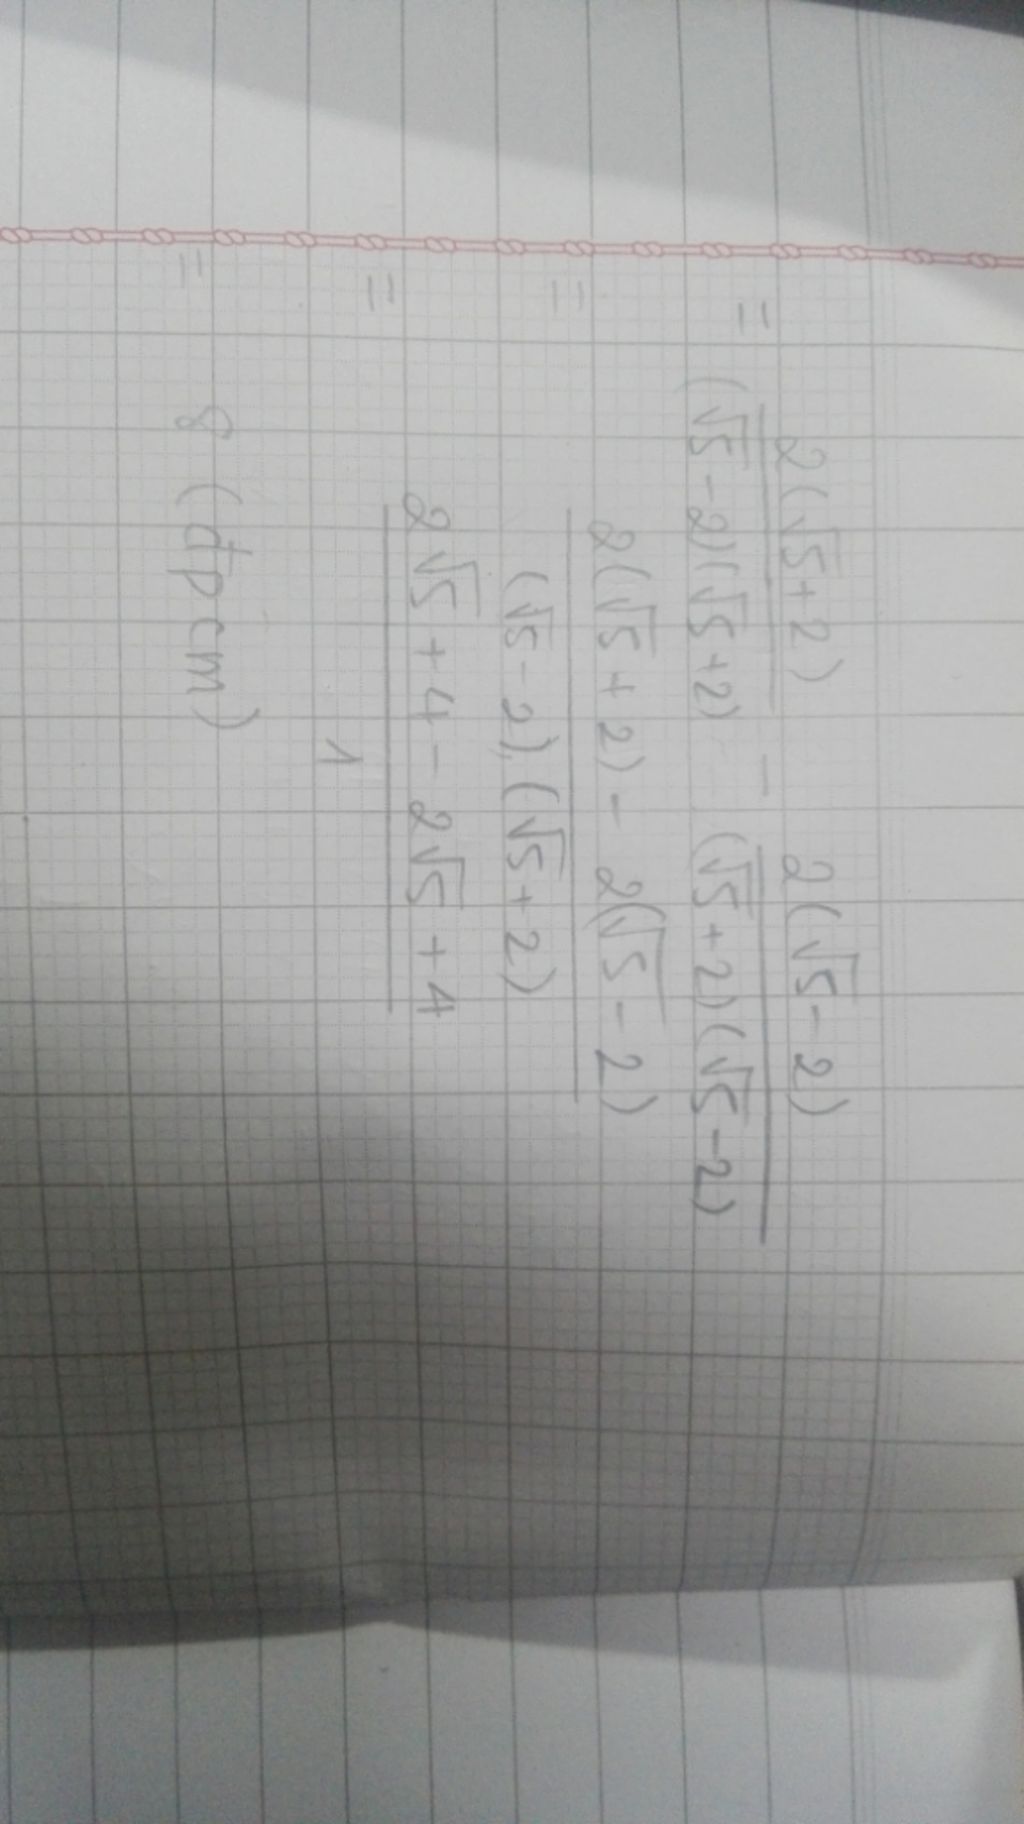 = 2(√5+2) / (√5-2)(√5+2) - 2(√5-2) / (√5+2)(√5-2)
= 2(√5+2) - 2(√5-2) / (√5-2).(√5+2)
= 2√5+4-2√5+4 / 1
= 8 (đpcm)